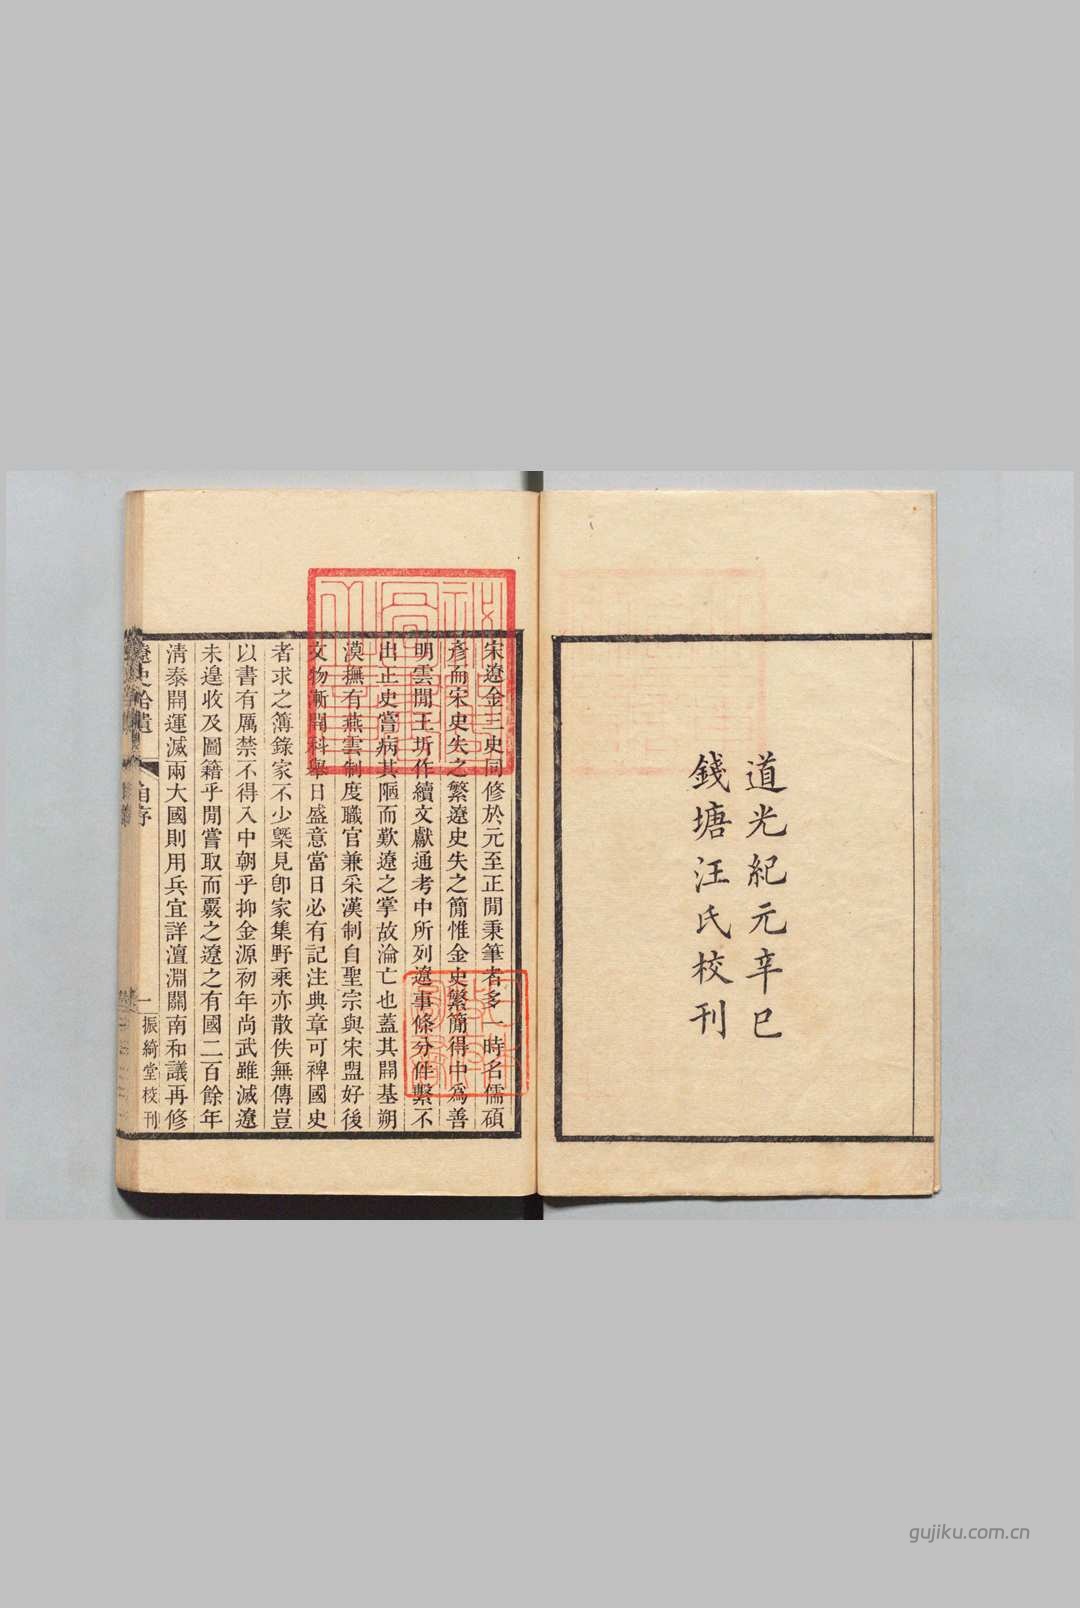 道光紀元辛巳
錢塘汪氏校刊
宋遼金三史同修於元至正閒秉筆者多一時名儒碩
彥而宋史失之繁遼史失之簡惟金史繁簡得中爲善
明雲閒王圻作續文獻通考中所列遼事條分件繫不
出正史嘗病其陋而歎遼之掌故淪亡也蓋其開基朔
漠撫有燕雲制度職官兼采漢制自聖宗與宋盟好後
文物漸開科舉日盛意當日必有記注典章可裨國史
者求之簿錄家不少槩見卽家集野乘亦散佚無傳豈
以書有厲禁不得入中朝乎抑金源初年尚武雖滅遼
未遑收及圖籍乎閒嘗取而覈之遼之有國二百餘年
淸泰開運滅兩大國則用兵宜詳澶淵關南和議再修
遼史拾遺 自序 一 振綺堂校刊
gujiku.com.cn